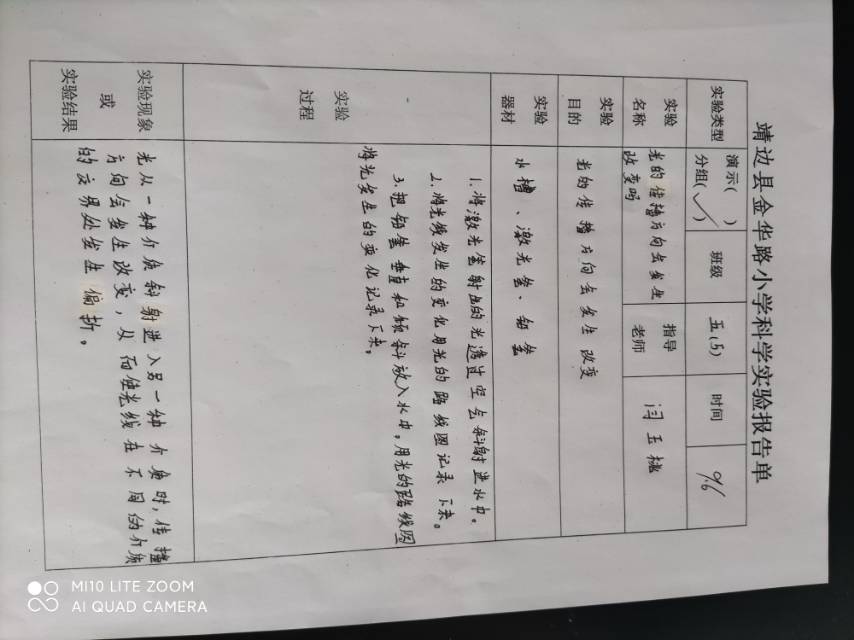 靖边县金华路小学科学实验报告单
实验类型 演示( ) 分组(✓) 班级 五(5) 时间 9.6
实验名称 光的传播方向会发生改变吗 指导老师 闫玉
实验目的 光的传播方向会发生改变
实验器材 水槽、激光笔、铅笔
实验过程
1.将激光笔射出的光透过空气斜射进水中。
2.将光线发生的变化用光的路线图记录下来。
3.把铅笔垂直和倾斜放入水中,用光的路线图
将光发生的变化记录下来。
实验现象或实验结果
光从一种介质斜射进入另一种介质时,传播
方向会发生改变,从而使光线在不同的介质
的交界处发生偏折。
MI10 LITE ZOOM
AI QUAD CAMERA